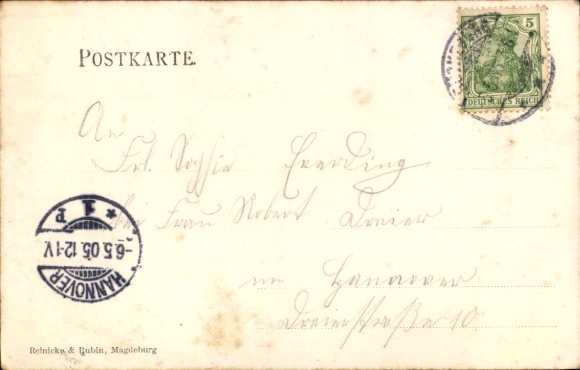 POSTKARTE.
5
DEUTSCHES REICH
An
Frl. Sophie Everding
bei Frau Robert Dreier
in Hannover
Dreierstraße 10
HANNOVER
-6.5.05.12-1V.
* 1 P
Reinicke & Rubin, Magdeburg